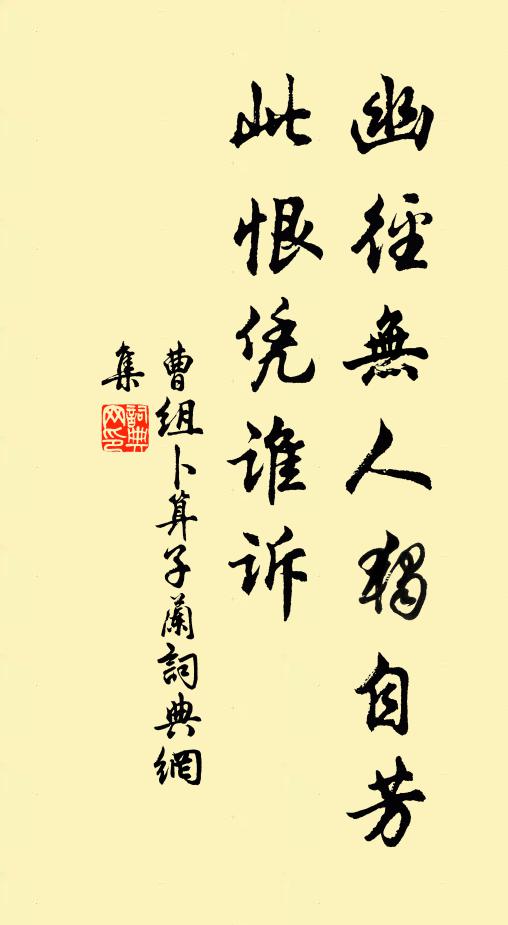 幽徑無人獨自芳
此恨凭誰訴
曹組卜算子蘭詞典網
集
詞典網印